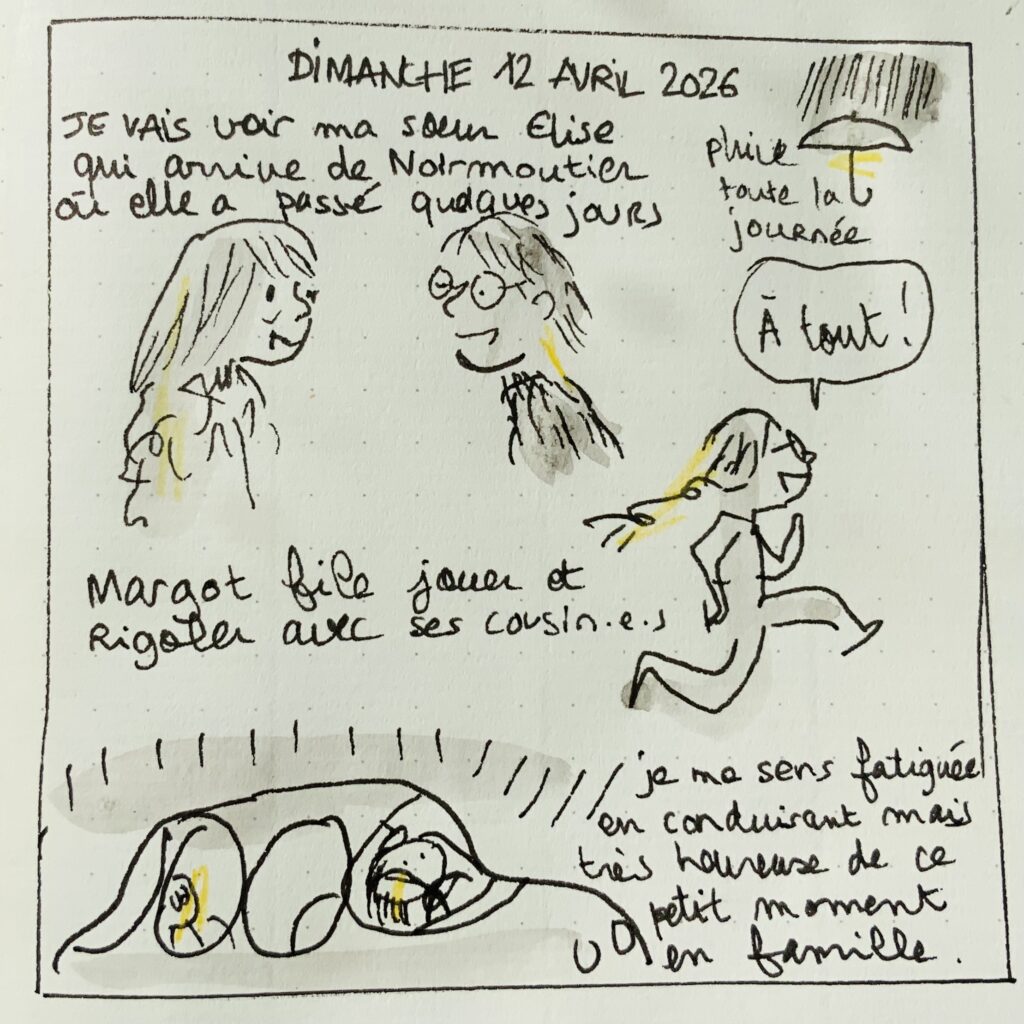 DIMANCHE 12 AVRIL 2026
JE VAIS voir ma sœur Elise
qui arrive de Noirmoutier
où elle a passé quelques jours
pluie
toute la
journée
À tout !
Margot file jouer et
Rigoler avec ses cousin.e.s
je me sens fatiguée
en conduisant mais
très heureuse de ce
petit moment
en famille.